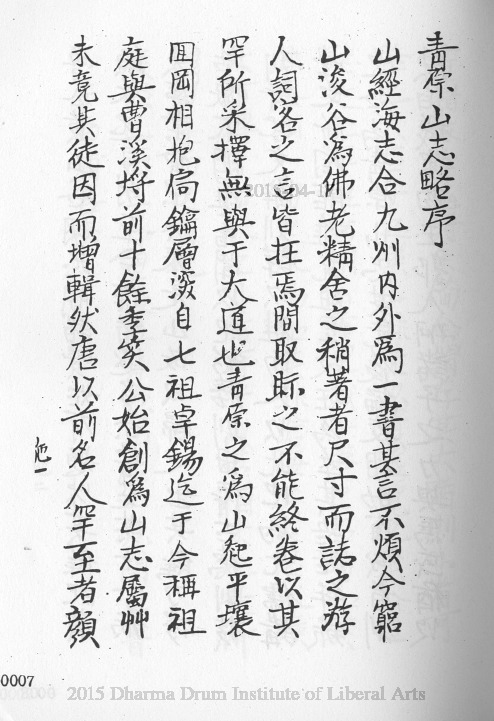 青原山志略序
山經海志合九州内外爲一書其言不煩今窮
山浚谷爲佛老精舍之稍著者尺寸而誌之游
人詞客之言皆在焉間取眎之不能終卷以其
罕所采擇無與于大道也青原之爲山起平壤
囬岡相抱扃鑰層深自七祖卓錫迄于今稱祖
庭與曹溪埒前十餘季笑公始創爲山志屬艸
未竟其徒因而增輯然唐以前名人罕至者顏
0007
2015 Dharma Drum Institute of Liberal Arts